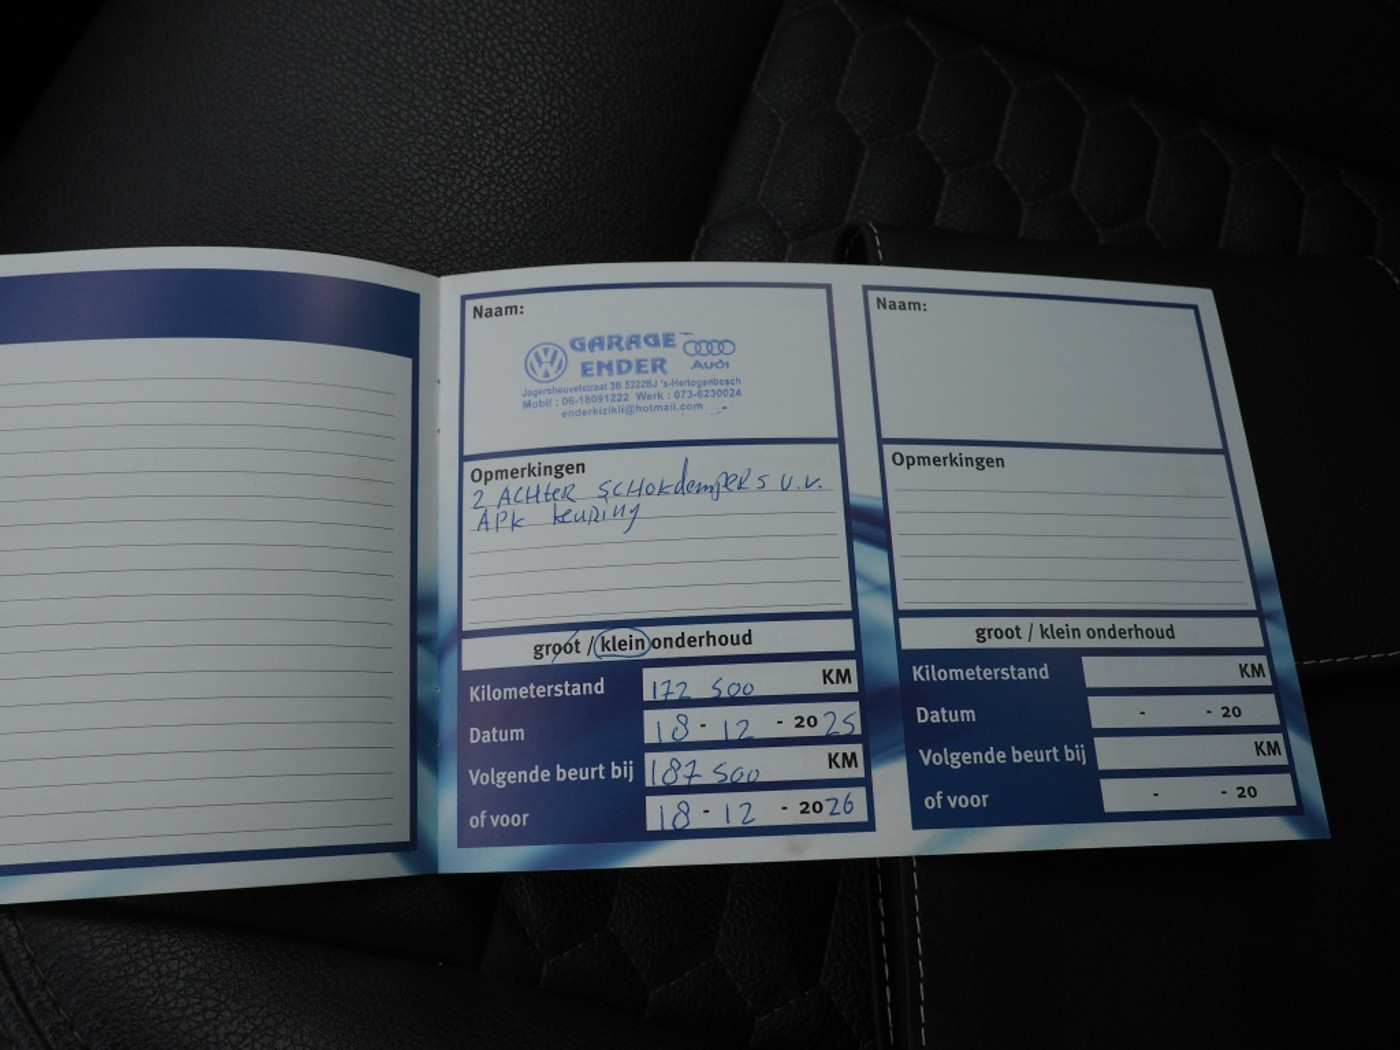 Naam:
GARAGE
ENDER
Audi
Jagersheuvelstraat 3B 5222BJ 's-Hertogenbosch
Mobil : 06-18091222 Werk : 073-6230024
enderkizikli@hotmail.com
Opmerkingen
2 ACHteR SCHOKdempeRs V.V.
APK keuRing
groot / klein onderhoud
Kilometerstand 172 500 KM
Datum 18 - 12 - 2025
Volgende beurt bij 187 500 KM
of voor 18 - 12 - 2026
Naam:
Opmerkingen
groot / klein onderhoud
Kilometerstand KM
Datum - - 20
Volgende beurt bij KM
of voor - - 20